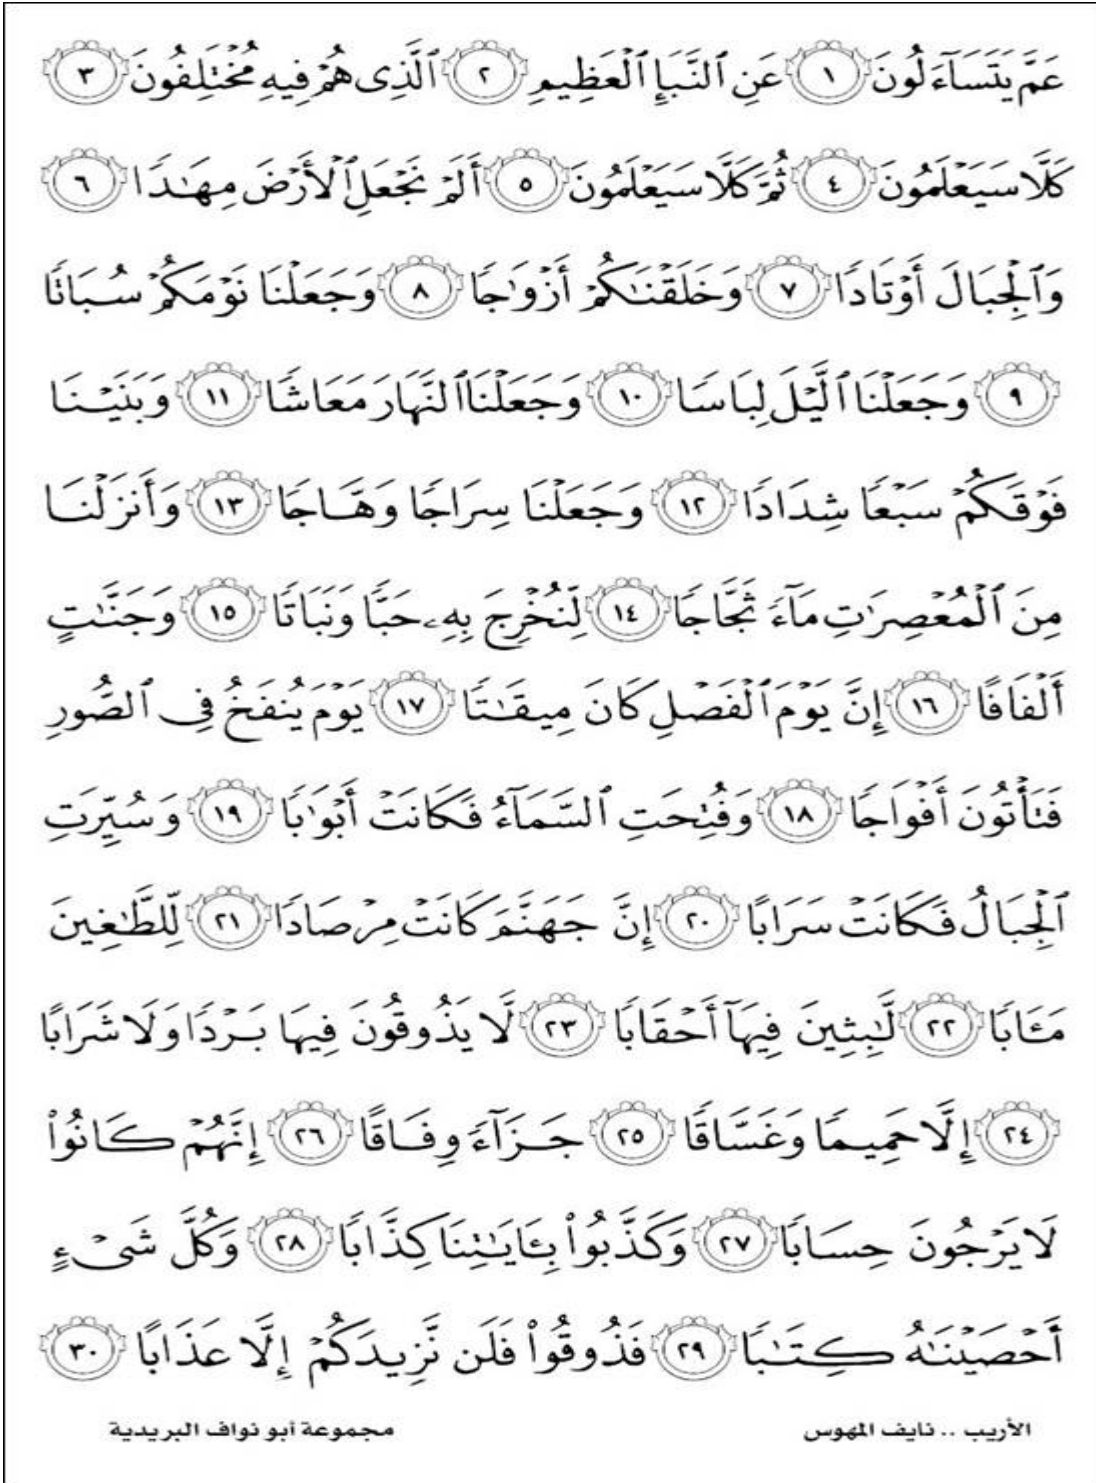 عَمَّ يَتَسَآءَلُونَ ١ عَنِ ٱلنَّبَإِ ٱلْعَظِيمِ ٢ ٱلَّذِى هُمْ فِيهِ مُخْتَلِفُونَ ٣
كَلَّا سَيَعْلَمُونَ ٤ ثُمَّ كَلَّا سَيَعْلَمُونَ ٥ أَلَمْ نَجْعَلِ ٱلْأَرْضَ مِهَٰدًا ٦
وَٱلْجِبَالَ أَوْتَادًا ٧ وَخَلَقْنَٰكُمْ أَزْوَٰجًا ٨ وَجَعَلْنَا نَوْمَكُمْ سُبَاتًا
٩ وَجَعَلْنَا ٱلَّيْلَ لِبَاسًا ١٠ وَجَعَلْنَا ٱلنَّهَارَ مَعَاشًا ١١ وَبَنَيْنَا
فَوْقَكُمْ سَبْعًا شِدَادًا ١٢ وَجَعَلْنَا سِرَاجًا وَهَّاجًا ١٣ وَأَنزَلْنَا
مِنَ ٱلْمُعْصِرَٰتِ مَآءً ثَجَّاجًا ١٤ لِّنُخْرِجَ بِهِۦ حَبًّا وَنَبَاتًا ١٥ وَجَنَّٰتٍ
أَلْفَافًا ١٦ إِنَّ يَوْمَ ٱلْفَصْلِ كَانَ مِيقَٰتًا ١٧ يَوْمَ يُنفَخُ فِى ٱلصُّورِ
فَتَأْتُونَ أَفْوَاجًا ١٨ وَفُتِحَتِ ٱلسَّمَآءُ فَكَانَتْ أَبْوَٰبًا ١٩ وَسُيِّرَتِ
ٱلْجِبَالُ فَكَانَتْ سَرَابًا ٢٠ إِنَّ جَهَنَّمَ كَانَتْ مِرْصَادًا ٢١ لِّلطَّٰغِينَ
مَـَٔابًا ٢٢ لَّٰبِثِينَ فِيهَآ أَحْقَابًا ٢٣ لَّا يَذُوقُونَ فِيهَا بَرْدًا وَلَا شَرَابًا
٢٤ إِلَّا حَمِيمًا وَغَسَّاقًا ٢٥ جَزَآءً وِفَاقًا ٢٦ إِنَّهُمْ كَانُوا۟
لَا يَرْجُونَ حِسَابًا ٢٧ وَكَذَّبُوا۟ بِـَٔايَٰتِنَا كِذَّابًا ٢٨ وَكُلَّ شَىْءٍ
أَحْصَيْنَٰهُ كِتَٰبًا ٢٩ فَذُوقُوا۟ فَلَن نَّزِيدَكُمْ إِلَّا عَذَابًا ٣٠
الأريب .. نايف المهوس مجموعة أبو نواف البريدية